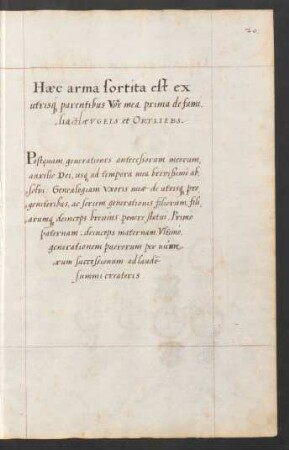 70
Hæc arma sortita est ex
utrisq parentibus Vxor mea prima de fami
lia HÆVGELS et ORTLIEBS.
Postquam generationis antecessorum meorum,
auxilio Dei, usq ad tempora mea breuissime ab
solui. Genealogiam Vxoris meæ de utrisq pro
genitoribus, ac seriem generationis filiorum, fili
arumq deinceps breuius ponere statui. Primo
paternam, deinceps maternam Vltimo,
generationem puerorum per nume
rum successionum ad laudē
summi creatoris